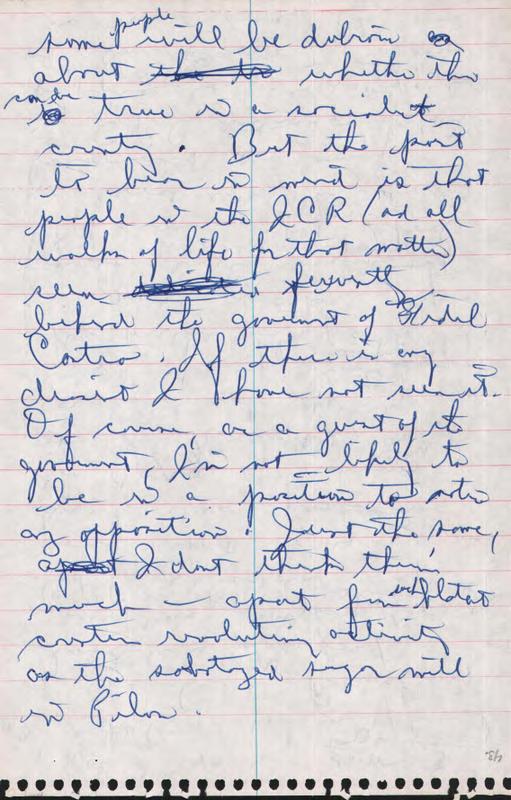 some people will be dubious
about whether this
can be true in a socialist
country. But the point
to bear in mind is that
people in the ICR (and all
walks of life for that matter)
seem fervently
behind the government of Fidel
Castro. If there is any
dissent I have not seen it.
Of course, as a guest of its
government, I'm not likely to
be in a position to notice
any opposition. Just the same,
I don't think there's
much — apart from such blatant
counter revolutionary activity
as the sabotaged sugar mill
in Pilon.